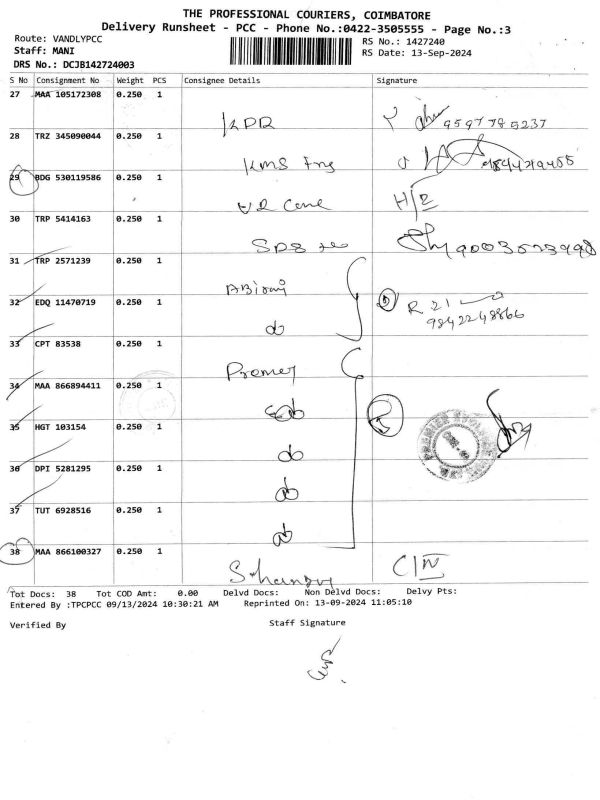 THE PROFESSIONAL COURIERS, COIMBATORE
Delivery Runsheet - PCC - Phone No.:0422-3505555 - Page No.:3
Route: VANDLYPCC RS No.: 1427240
Staff: MANI RS Date: 13-Sep-2024
DRS No.: DCJB142724003
S No Consignment No Weight PCS Consignee Details Signature
27 MAA 105172308 0.250 1
KPR 9597785237
28 TRZ 345090044 0.250 1
KMS Eng
29 BDG 530119586 0.250 1
H/R
30 TRP 5414163 0.250 1
31 TRP 2571239 0.250 1
ABirami
32 EDQ 11470719 0.250 1
R 21
9842248866
do
33 CPT 83538 0.250 1
Premer
34 MAA 866894411 0.250 1
do
35 HGT 103154 0.250 1
do
36 DPI 5281295 0.250 1
do
37 TUT 6928516 0.250 1
do
38 MAA 866100327 0.250 1
Tot Docs: 38 Tot COD Amt: 0.00 Delvd Docs: Non Delvd Docs: Delvy Pts:
Entered By :TPCPCC 09/13/2024 10:30:21 AM Reprinted On: 13-09-2024 11:05:10
Verified By Staff Signature